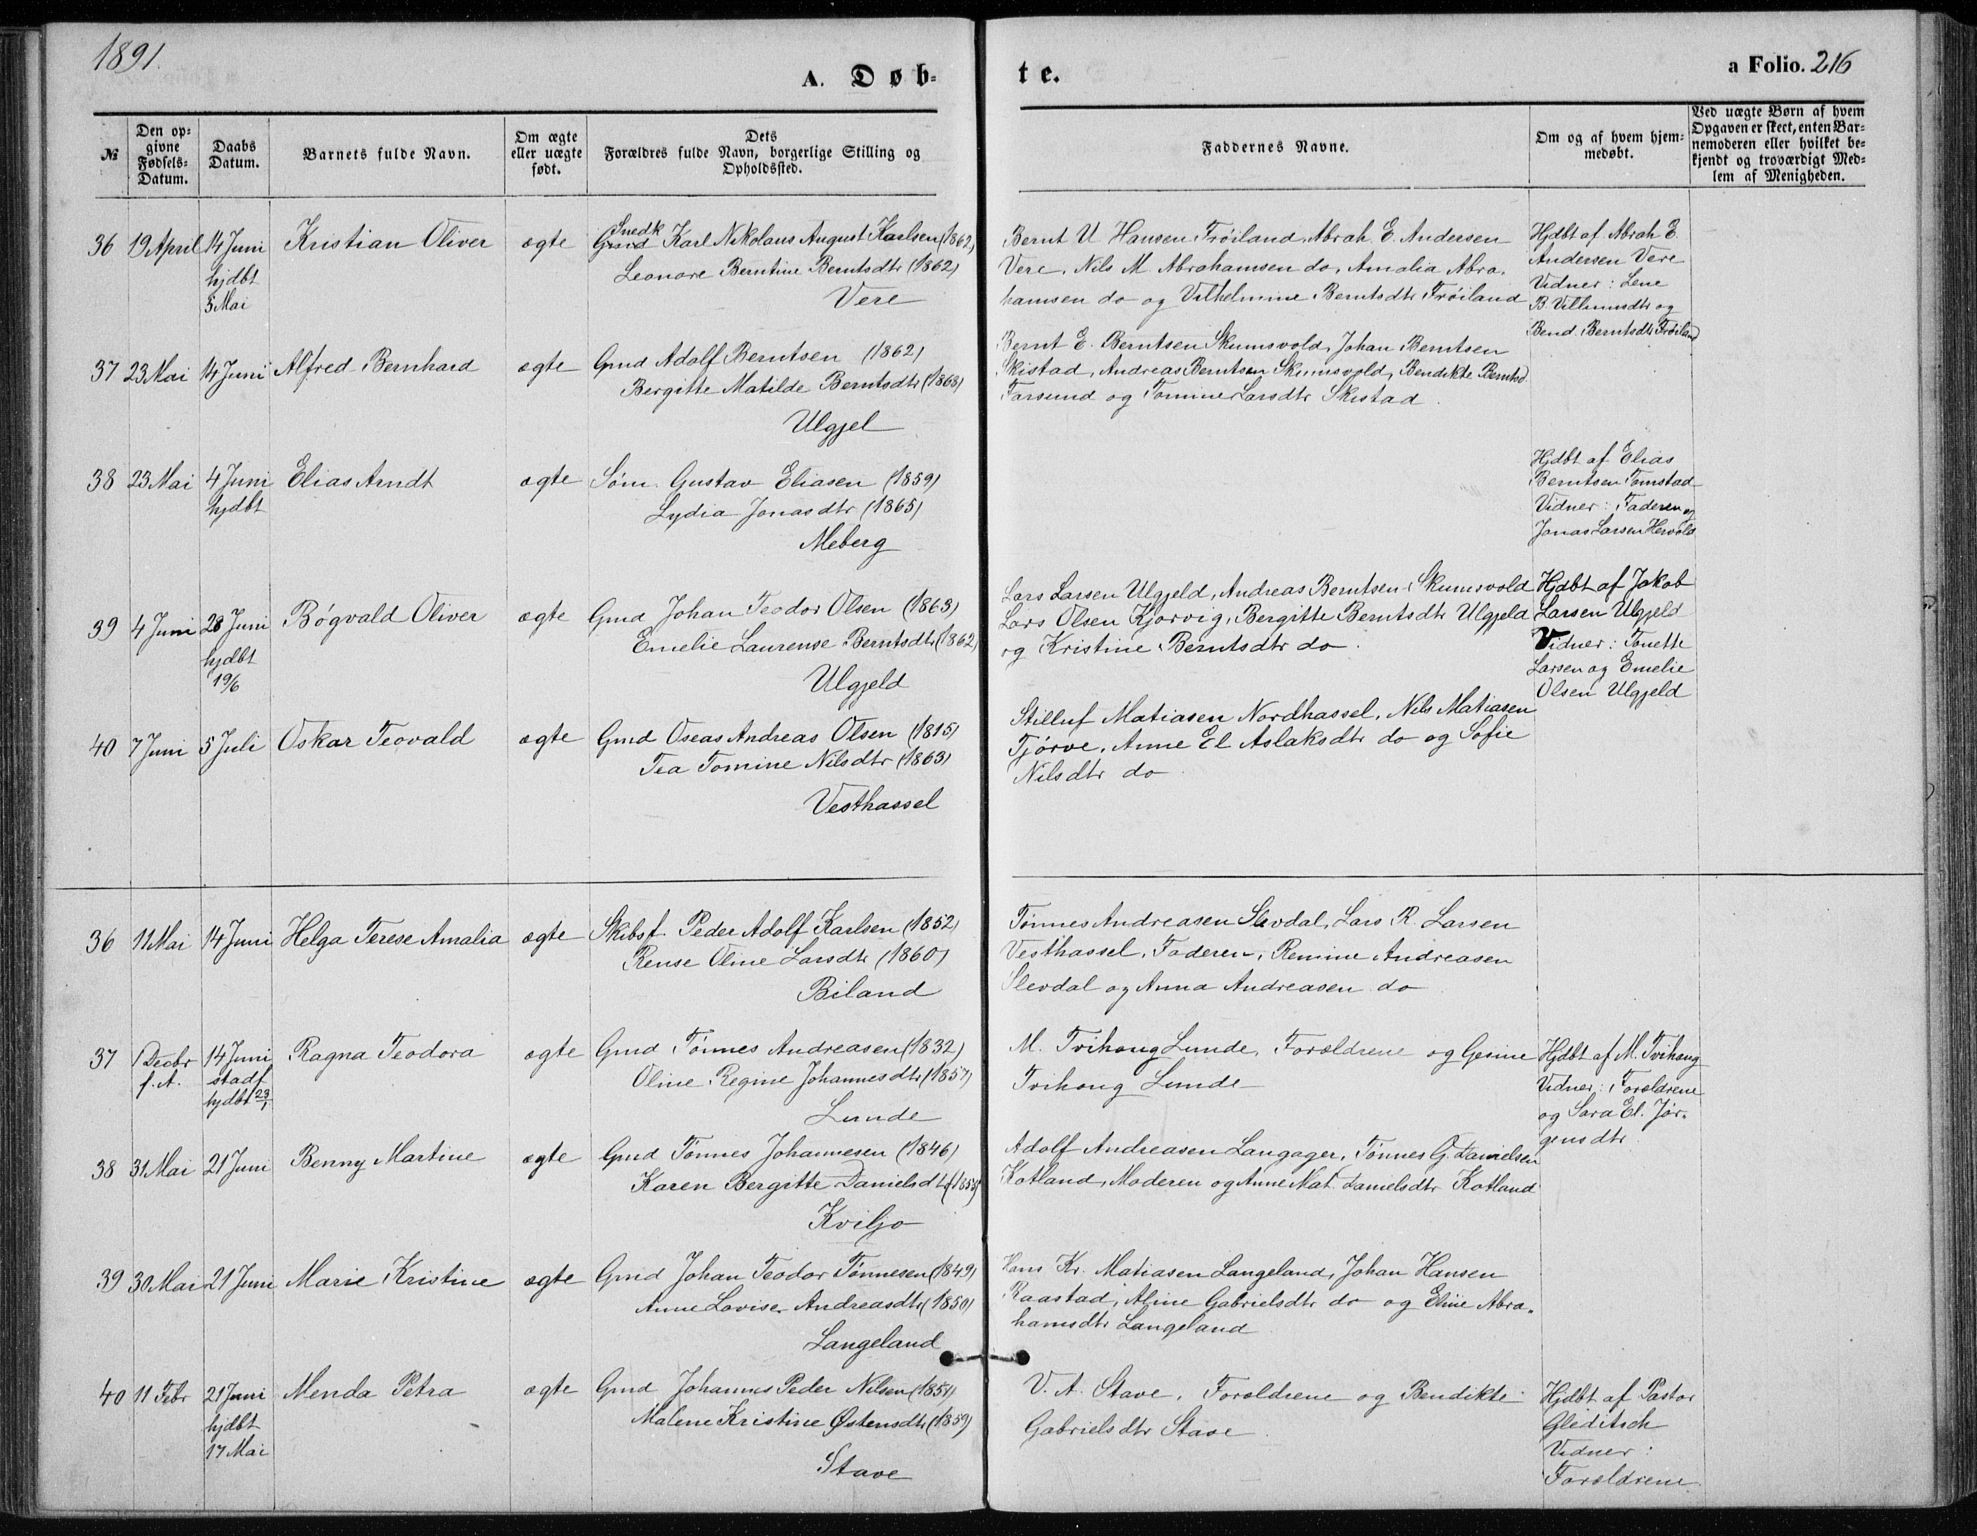 1891.
A. Døb-
te.
a Folio. 216
№
Den op-
givne
Fødsels-
Datum.
Daabs
Datum.
Barnets fulde Navn.
Om ægte
eller uægte
født.
Dets
Forældres fulde Navn, borgerlige Stilling og
Opholdssted.
Faddernes Navne.
Om og af hvem hjem-
medøbt.
Ved uægte Børn af hvem
Opgaven er skeet, enten Bar-
nemoderen eller hvilket be-
kjendt og troværdigt Med-
lem af Menigheden.
36 19 April 14 Juni Kristian Oliver ægte Gmd Karl Nikolaus August Karlsen (1862)
Snedk
hjdbt
5 Mai
Leonore Berntine Berntsdtr (1862)
Vere
Bernt U Hansen Frøiland, Abrah E. Andersen
Vere, Nils M Abrahamsen do, Amalia Abra-
hamsen do og Vilhelmine Berntsdtr Frøiland
Hjdbt af Abrah E.
Andersen Vere
Vidner: Lene
B. Villumsdtr og
Bend. Berntsdtr Frøiland
37 23 Mai 14 Juni Alfred Bernhard ægte Gmd Adolf Berntsen (1862)
Bergitte Matilde Berntsdtr (1868)
Ulgjel
Bernt E. Berntsen Skumsvold, Johan Berntsen
Skistad, Andreas Berntsen Skumsvold, Bendikte Berntsd.
Farsund og Tomine Larsdtr Skistad.
38 23 Mai 4 Juni Elias Arndt ægte Søm. Gustav Eliasen (1859)
hjdbt
Lydia Jonasdtr (1865)
Meberg
Hjdbt af Elias
Berntsen Tomstad
Vidner: Faderen og
Jonas Larsen Hervold
39 4 Juni 28 Juni Bøgvald Oliver ægte Gmd Johan Teodor Olsen (1863)
hjdbt
19/6
Emelie Laurense Berntsdtr (1862)
Ulgjeld
Lars Larsen Ulgjeld, Andreas Berntsen Skumsvold
Lars Olsen Kjørvig, Bergitte Berntsdtr Ulgjeld
og Kristine Berntsdtr do.
Hjdbt af Jakob
Larsen Ulgjeld
Vidner: Tonette
Larsen og Emelie
Olsen Ulgjeld
40 7 Juni 5 Juli Oskar Teovald ægte Gmd Oseas Andreas Olsen (1815)
Tea Tomine Nilsdtr (1863)
Vesthassel
Stilluf Matiasen Nordhassel, Nils Matiasen
Tjørve, Anne El Aslaksdtr do og Sofie
Nilsdtr do
36 11 Mai 14 Juni Helga Terese Amalia ægte Skibsf. Peder Adolf Karlsen (1852)
Rense Oline Larsdtr (1860)
Biland
Tønnes Andreasen Slevdal, Lars R. Larsen
Vesthassel, Faderen, Remine Andreasen
Slevdal og Anna Andreasen do
37 1 Decbr 14 Juni Ragna Teodora ægte Gmd Tønnes Andreasen (1832)
f. A. stadf
hjdbt 23/1
Oline Regine Johannesdtr (1857)
Lunde
M. Tvihoug Lunde, Forældrene og Gesine
Tvihoug Lunde
Hjdbt af M. Tvihoug
Vidner: Forældrene
og Sara El. Jør-
gensdtr
38 31 Mai 21 Juni Benny Martine ægte Gmd Tønnes Johannesen (1846)
Karen Bergitte Danielsdtr (1853)
Kviljo
Adolf Andreasen Langager, Tønnes G. Danielsen
Kotland, Moderen og Anne Mat. Danielsdtr Kotland
39 30 Mai 21 Juni Marie Kristine ægte Gmd Johan Teodor Tønnesen (1849)
Anne Lovise Andreasdtr (1850)
Langeland
Hans Kr. Matiasen Langeland, Johan Hansen
Raastad, Aline Gabrielsdtr do og Eline Abra-
hamsdtr Langeland
40 11 Febr 21 Juni Menda Petra ægte Gmd Johannes Peder Nilsen (1851)
hjdbt
17 Mai
Malene Kristine Østensdtr (1859)
Stave
V. A. Stave, Forældrene og Bendikte
Gabrielsdtr Stave.
Hjdbt af Pastor
Gleditsch
Vidner:
Forældrene